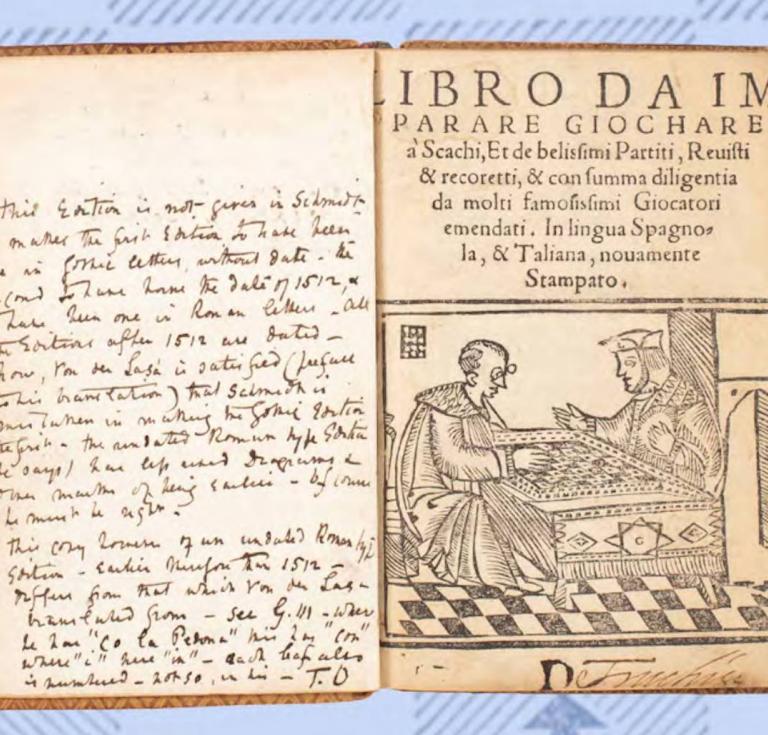 this Edition is not given in Schmidt
makes the first Edition to have been
in Gothic letters, without date - the
to have borne the date of 1512, &
have been one in Roman letters - All
Editions after 1512 are dated -
Von der Lasa is satisfied (preface
to his translation) that Schmidt is
mistaken in making the Gothic Edition
the first - the undated Roman type Editn
he says) have less used Diagrams &
other marks of being Earlier - of course
he must be right -
this copy however of an undated Roman type
Edition - Earlier therefore than 1512 -
differs from that which Von der Lasa
translated from - See G.III - where
he has "Co la Pedona" this has "Con"
where "i" here "in" - each leaf also
is numbered - not so, in his - T.D
LIBRO DA IM
PARARE GIOCHARE
à Scachi, Et de belissimi Partiti, Reuisti
& recoretti, & con summa diligentia
da molti famosissimi Giocatori
emendati. In lingua Spagno-
la, & Taliana, nouamente
Stampato.
G
D